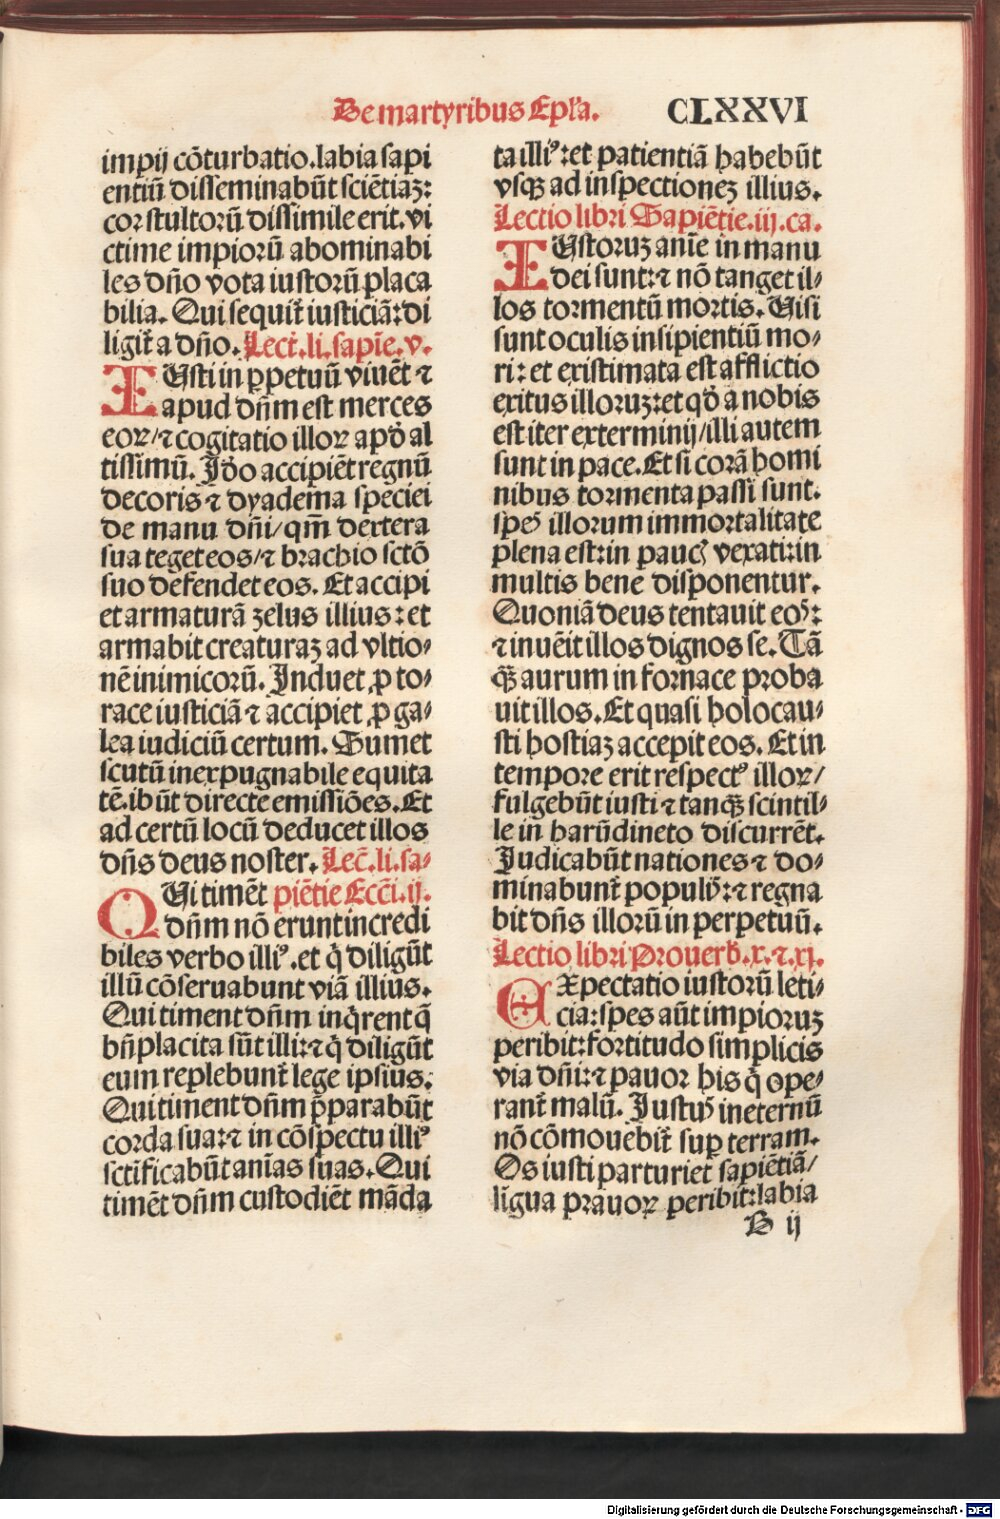 De martyribus Epl'a. CLXXVI
impij cōturbatio.labia sapi
entiū disseminabūt sciētiaz:
cor stultorū dissimile erit.vi
ctime impiorū abominabi
les dño vota iustorū placa
bilia. Qui sequit̄ iusticiā:di
ligit̄ a dño. Lect̄.li.sapīe.v.
IUsti in ꝑpetuū viuēt ⁊
apud dñm est merces
eoꝝ/⁊ cogitatio illoꝝ apd̄ al
tissimū. Jdo accipiēt regnū
decoris ⁊ dyadema speciei
de manu dñi/qm̄ dextera
sua teget eos/⁊ brachio sctō
suo defendet eos. Et accipi
et armaturā zelus illius:et
armabit creaturaz ad vltio⸗
nē inimicorū. Induet ꝓ to⸗
race iusticiā ⁊ accipiet ꝓ ga⸗
lea iudiciū certum. Sumet
scutū inexpugnabile equita
tē.ibūt directe emissiōes. Et
ad certū locū deducet illos
dñs deus noster. Lec̄.li.sa⸗
QUi timēt piētie Ecc̄i.ij.
dñm nō erunt incredi
biles verbo illiꝰ.et q̇ diligūt
illū cōseruabunt viā illius.
Qui timent dñm inq̇rent q̄
bñplacita sūt illi:⁊ q̇ diligūt
eum replebunt lege ipsius.
Qui timent dñm p̄parabūt
corda sua:⁊ in cōspectu illiꝰ
sctificabūt anīas suas. Qui
timēt dñm custodiēt māda
ta illiꝰ:et patientiā habebūt
vsqꝫ ad inspectionez illius.
Lectio libri Sapiētie.iij.ca.
IUstoruz anīe in manu
dei sunt:⁊ nō tanget il⸗
los tormentū mortis. Uisi
sunt oculis insipientiū mo⸗
ri: et existimata est afflictio
exitus illoruz:et qd̄ a nobis
est iter exterminij/illi autem
sunt in pace. Et si corā homi
nibus tormenta passi sunt.
spes illorum immortalitate
plena est:in paucis vexati:in
multis bene disponentur.
Quoniā deus tentauit eos:
⁊ inuēit illos dignos se. Tā
q̄ꝫ aurum in fornace proba
uit illos. Et quasi holocau⸗
sti hostiaz accepit eos. Et in
tempore erit respectꝰ illoꝝ/
fulgebūt iusti ⁊ tanq̄ꝫ scintil⸗
le in harūdineto discurrēt.
Judicabūt nationes ⁊ do⸗
minabunt̄ populis:⁊ regna
bit dñs illorū in perpetuū.
Lectio libri Prouerb̄.x.⁊.xj.
EXpectatio iustorū leti⸗
cia:spes aūt impioruz
peribit:fortitudo simplicis
via dñi:⁊ pauor his q̇ ope⸗
rant̄ malū. Justus in eternū
nō cōmouēbit̄ suꝑ terram.
Os iusti parturiet sapiētiā/
līgua prauoꝝ peribit:labia
B ij
Digitalisierung gefördert durch die Deutsche Forschungsgemeinschaft - DFG